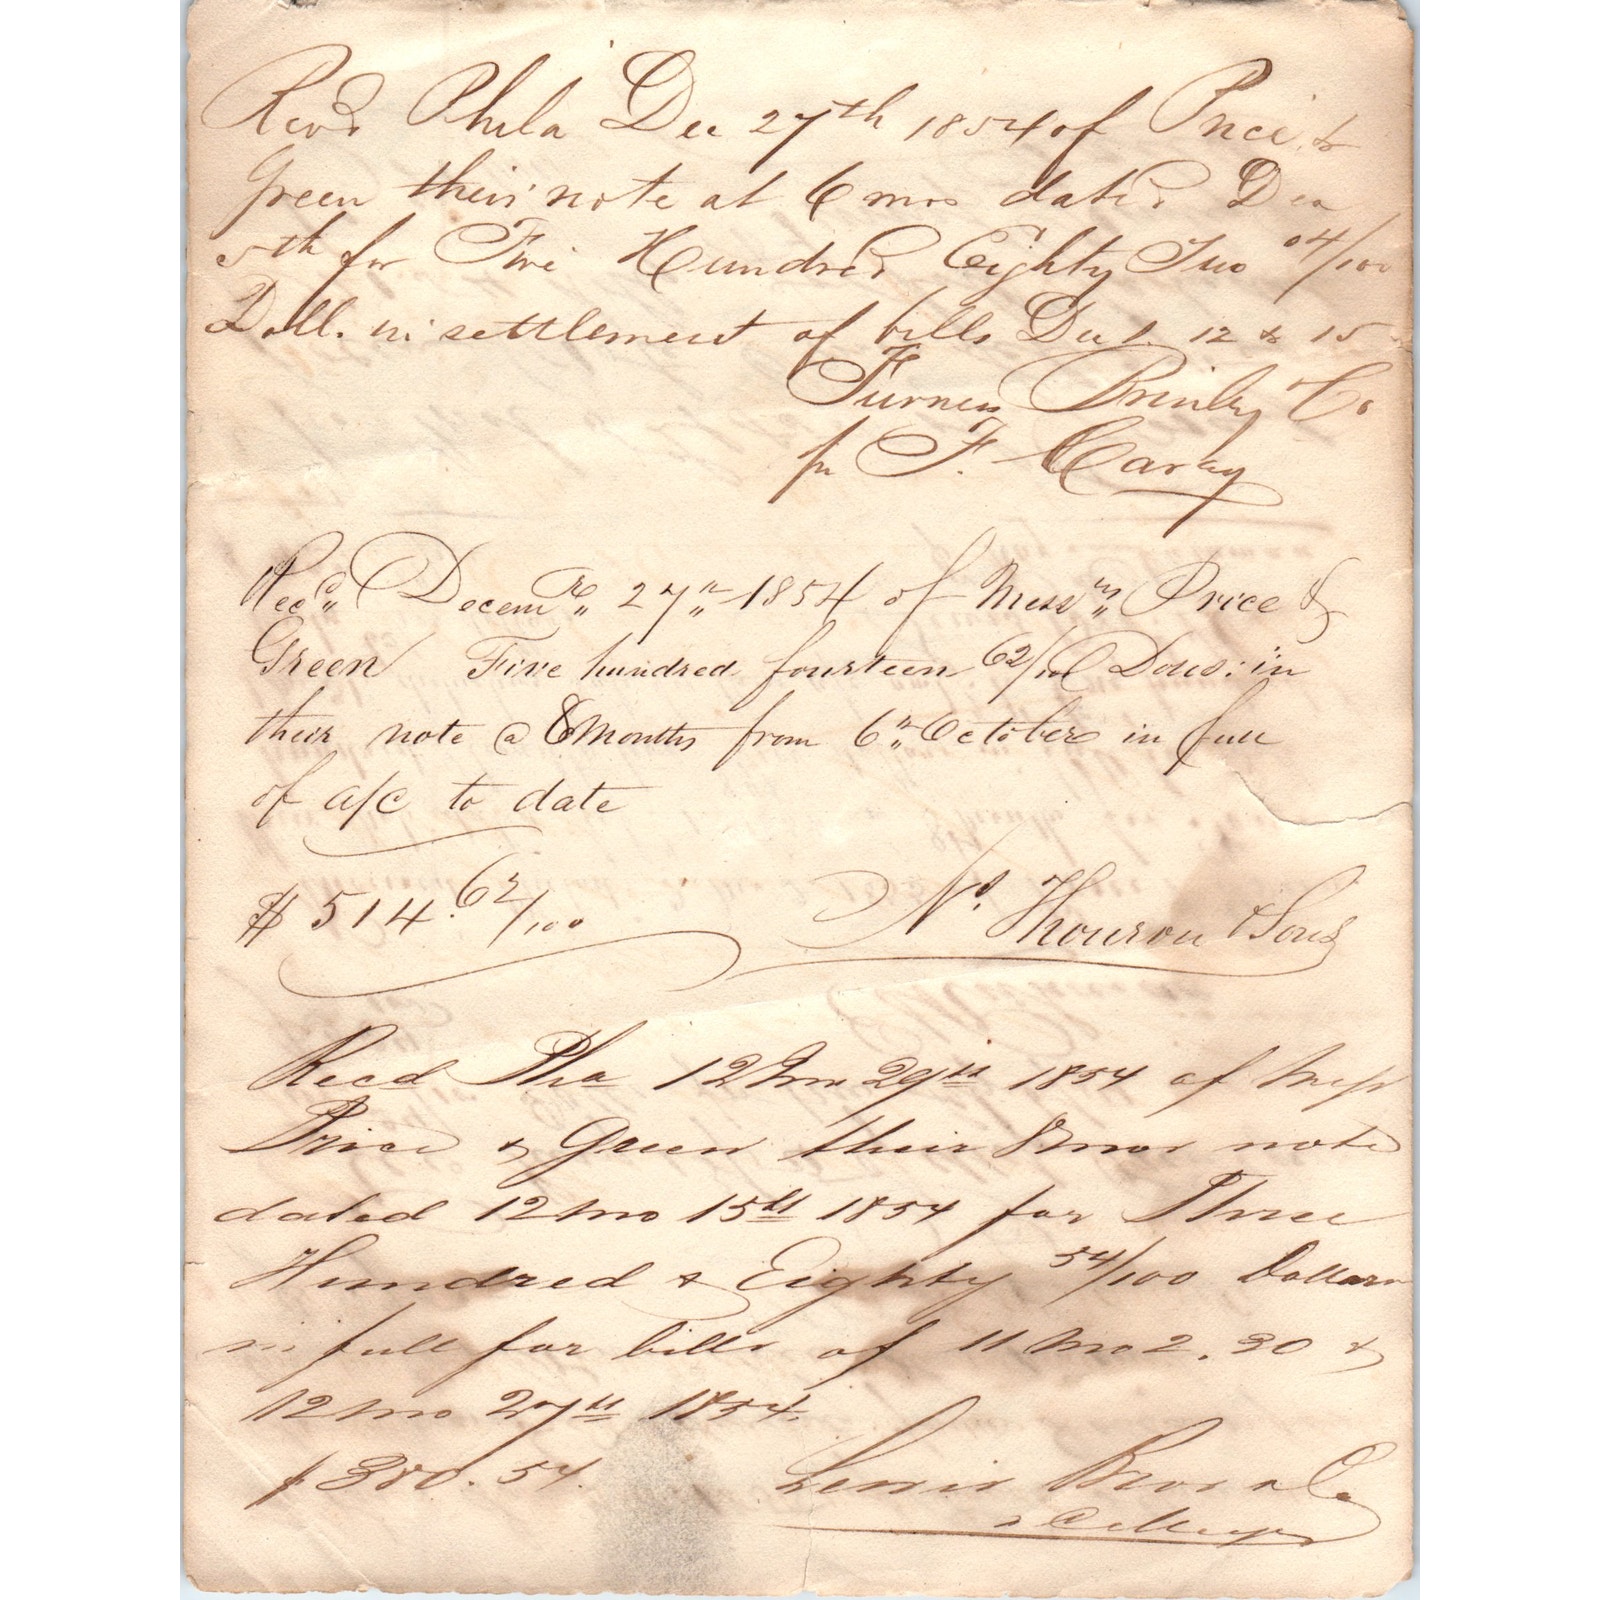 Recd Phila Dec 27th 1854 of Price &
Green their note at 6 mos dated Dec
5th for Five Hundred Eighty Two 04/100
Doll. in settlement of bills Dec 1. 12 & 15
Furness Brinley & Co
pr F. Carey
Recd Decemr 27th 1854 of Messrs Price &
Green Five hundred fourteen 62/100 Dolls: in
their note @ 8 Months from 6th October in full
of a/c to date
$ 514.62/100
Ns. Thouron & Sons
Recd Pha 12 mo 29th 1854 of Mess
Price & Green their 8 mos note
dated 12 mo 15th 1854 for Three
Hundred & Eighty 54/100 Dollars
in full for bills of 11 mo 2. 30 &
12 mo 27th 1854.
$380.54.
Lewis Bros & Co